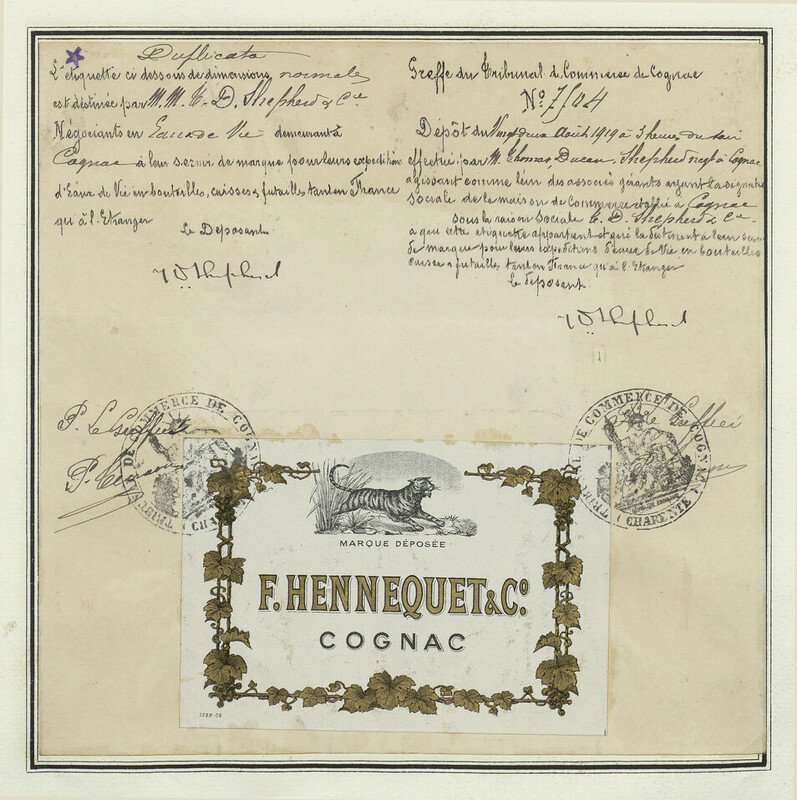 Duplicata
L'étiquette ci dessous de dimensions normales
est destinée par M.M. T. D. Shepherd & Cie
Négociants en Eaux de Vie demeurant à
Cognac à leur servir de marque pour leurs expéditions
d'Eaux de Vie en bouteilles, caisses & futailles tant en France
qu'à l'Etranger
Le Déposant
T D Shepherd
Greffe du Tribunal de Commerce de Cognac
No 7504
Dépôt du Vingt deux Août 1919 à 3 heures du soir
effectué par M. Thomas Ducan Shepherd négt à Cognac
agissant comme l'un des associés gérants ayant la signature
sociale de la maison de Commerce établie à Cognac
sous la raison sociale T. D. Shepherd & Cie
a qui cette étiquette appartient et qui la destinent à leur servir
de marque pour leurs expéditions d'eaux de Vie en bouteilles
caisses & futailles tant en France qu'à l'Etranger
Le déposant
T D Shepherd
P. Le Greffier
Le Greffier
TRIBUNAL DE COMMERCE DE COGNAC
CHARENTE
TRIBUNAL DE COMMERCE DE COGNAC
CHARENTE
MARQUE DÉPOSÉE
F. HENNEQUET & Co.
COGNAC